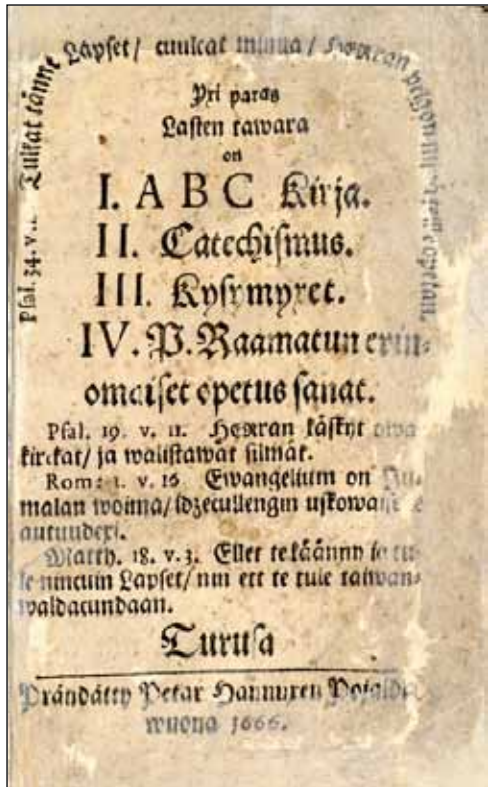 Psal. 34. v. 11. Tulkat tänne Lapset/ cuulcat minua/ Herran pelgon
Yxi paras
Lasten tawara
on
I. A B C Kirja.
II. Catechismus.
III. Kysymyxet.
IV. P. Raamatun erin-
omaiset opetus sanat.
Psal. 19. v. 11. Herran käskyt owa
kirckat/ ja walistawat silmät.
Rom: 1. v. 16 Ewangelium on Ju-
malan woima/ idzecullengin uskowaise
autuudexi.
Matth. 18. v. 3. Ellet te käänny ja tu-
le nincuin Lapset/ nin ett te tule taiwan-
waldacundaan.
Turusa
Prändätty Petar Hannuxen Pojalda
wuona 1666.